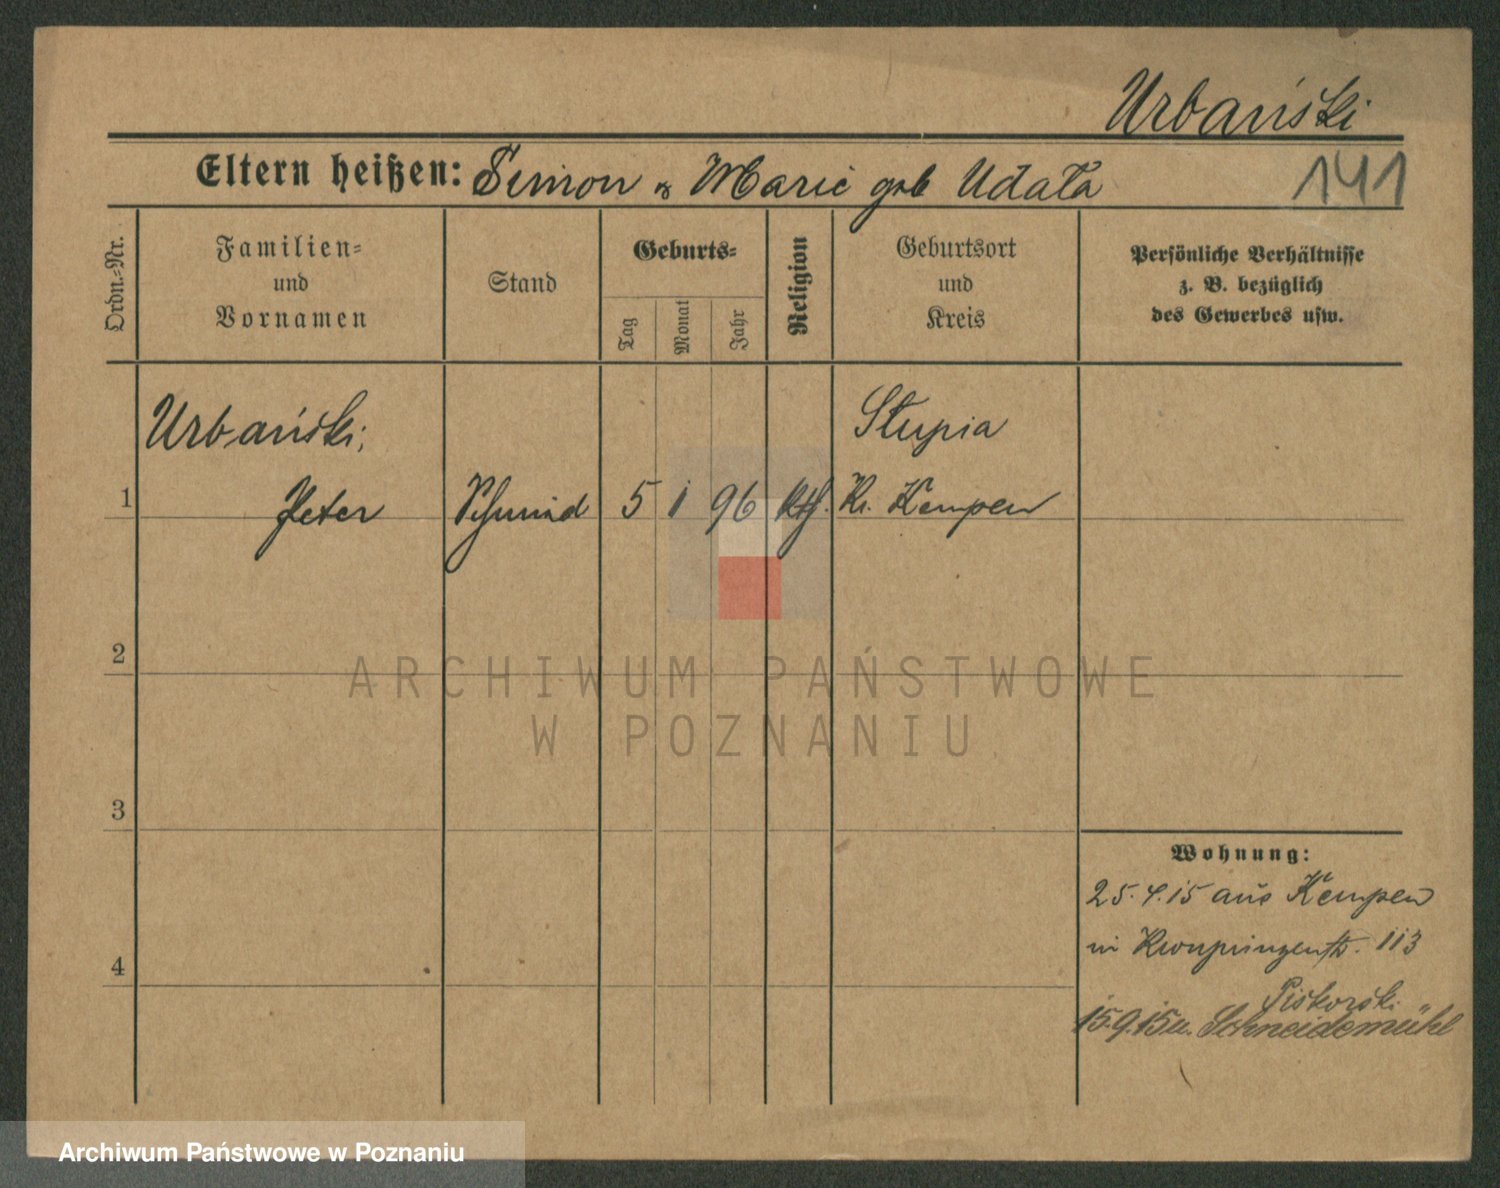 Urbański
Eltern heißen: Simon & Marie geb Udała
141
Ordn.-Nr.
Familien-
und
Vornamen
Stand
Geburts-
Tag
Monat
Jahr
Religion
Geburtsort
und
Kreis
Persönliche Verhältnisse
z. B. bezüglich
des Gewerbes usw.
Urbański,
Słupia
1 Peter Schmied 5 1 96 kth. Kr. Kempen
2
3
4
Wohnung:
25.4.15 aus Kempen
in Kronprinzenstr. 113
Piskorski
15.9.15 n. Schneidemühl
ARCHIWUM PAŃSTWOWE
W POZNANIU
Archiwum Państwowe w Poznaniu